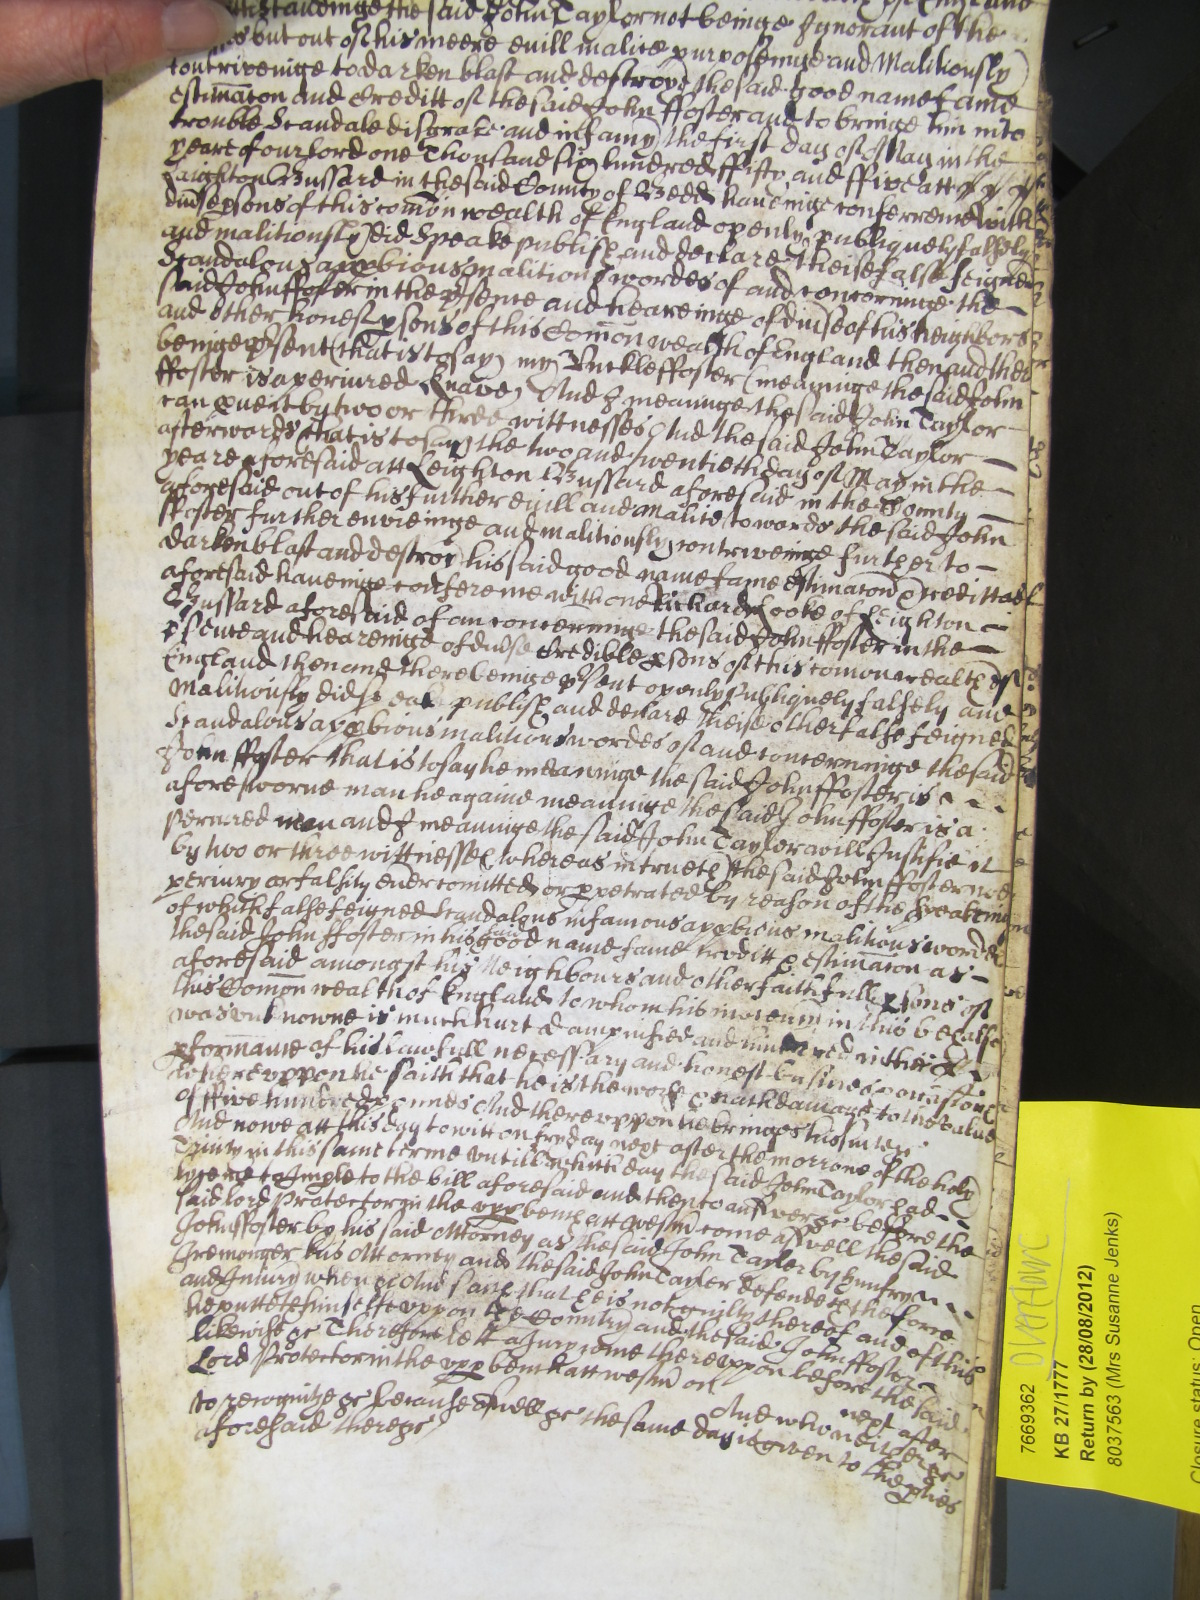 standinge the said John Taylor not beinge Ignorant of the
but out of his meere evill malice purposeinge and Malitiously
contriveinge to darken blast and destroye the said good name fame
estimacon and Creditt of the said John ffoster and to bringe him into
trouble Scandale disgrace and infamy the first day of May in the
yeare of our Lord one Thousand six hundred ffifty and ffive att
Laighton Bussard in the said County of Bedd haveinge conferrence with
divse psons of this comon wealth of England openly publiquely falsely
and malitiously did Speake publish and declare theise false feigned
Scandalous appbrious malitious wordes of and concerninge the
said John ffoster in the psence and heareinge of divse of his Neighbors
and other honest psons of this Comon wealth of England then and there
beinge psent (that is to say) my Unckle ffoster (meaninge the said John
ffoster is a periured Knave) And I meaninge the said John Taylor
can prove it by two or three wittnesses And the said John Taylor
afterwards that is to say the two and twentieth day of May in the
yeare aforesaid att Leighton Bussard aforesaid in the County
aforesaid out of his further evill and malice towards the said John
ffoster further envieinge and malitiously contriveinge further to
darken blast and destroy his said good name fame estimacon & creditt as
aforesaid haveinge conference with one Richard Cooke of Leighton
Bussard aforesaid of an concerninge the said John ffoster in the
psence and heareinge of divse Credible psons of this comonwealth of
England then and there beinge psent openly publiquely falsely and
Malitiously did speake publish and declare theise other false feigned
Scandalous appbrious malitious wordes of and concerninge the said
John ffoster that is to say he meaninge the said John ffoster is
a foresworne man he againe meaninge the said John ffoster is a
periured man and I meaninge the said John Taylor will Justifie it
by two or three wittnesses whereas in trueth the said John ffoster
periury or falsity ever comitted or ppetrated by reason of the speakeing
of which false feigned Scandalous infamous appbrious malitious wordes
the said John ffoster in his said good name fame creditt & estimacon as
aforesaid amongst his Neighbours and other faithfull psons of
this Comon wealth of England to whom his inocency in this behalfe
was unknowne is much hurt dampnified and hindered in the
pformance of his lawfull necessary and honest business occasions
Whereuppon he saith that he is the worse & hath damage to the value
of ffive hundred pounds And thereuppon he bringes his suite &c
And nowe att this day to witt on Fryday next after the morrowe of the holy
Trinity in this same terme untill which day the said John Taylor had
lycence to Imple to the bill aforesaid and then to answere &c before the
said Lord Protector in the upp bench att westm come aswell the said
John ffoster by his said Attorney as the said John Tayler by Humfry
Iremonger his Attorney and the said John Tayler defendeth the force
and Iniury when &c And saith that he is not guilty thereof and of this
he putteth himselfe uppon the Country and the said John ffoster
likewise &c Therefore lett a Jury come thereuppon before the said
Lord Protector in the upp bench att westm on next after
to recognize &c because aswell &c the same day is given to the pties
aforesaid there &c
And who neither &c
7669362 Overflow
KB 27/1777
Return by (28/08/2012)
8037563 (Mrs Susanne Jenks)
Closure status: Open